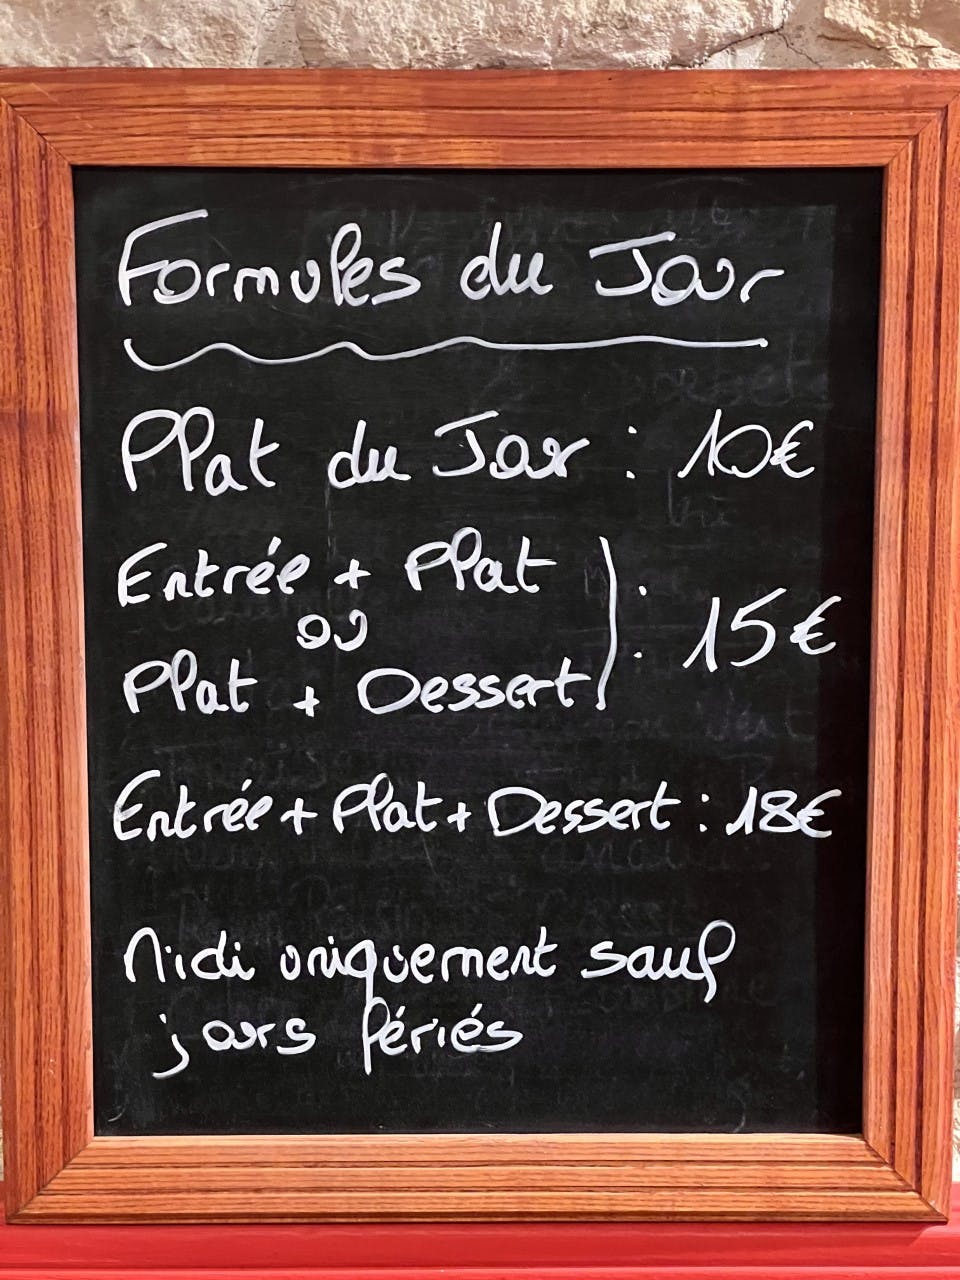 Formules du Jour
Plat du Jour : 10€
Entrée + Plat
ou
Plat + Dessert
: 15€
Entrée + Plat + Dessert : 18€
Midi uniquement sauf
jours fériés